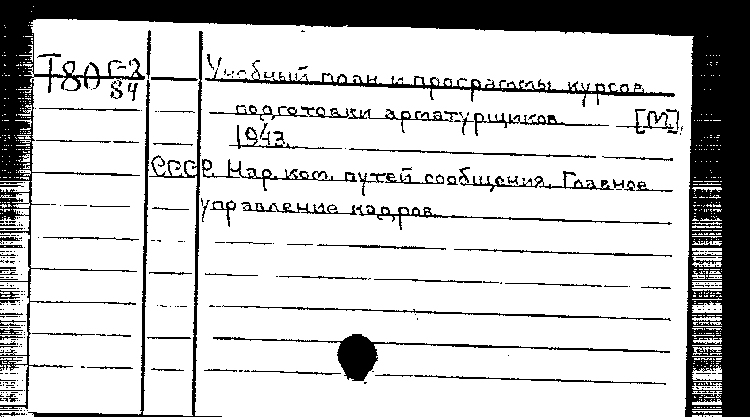 Т80 Г-2/84 Учебный план и программы курсов
подготовки арматурщиков. [М.],
1943.
СССР. Нар. ком. путей сообщения. Главное
управление кадров.